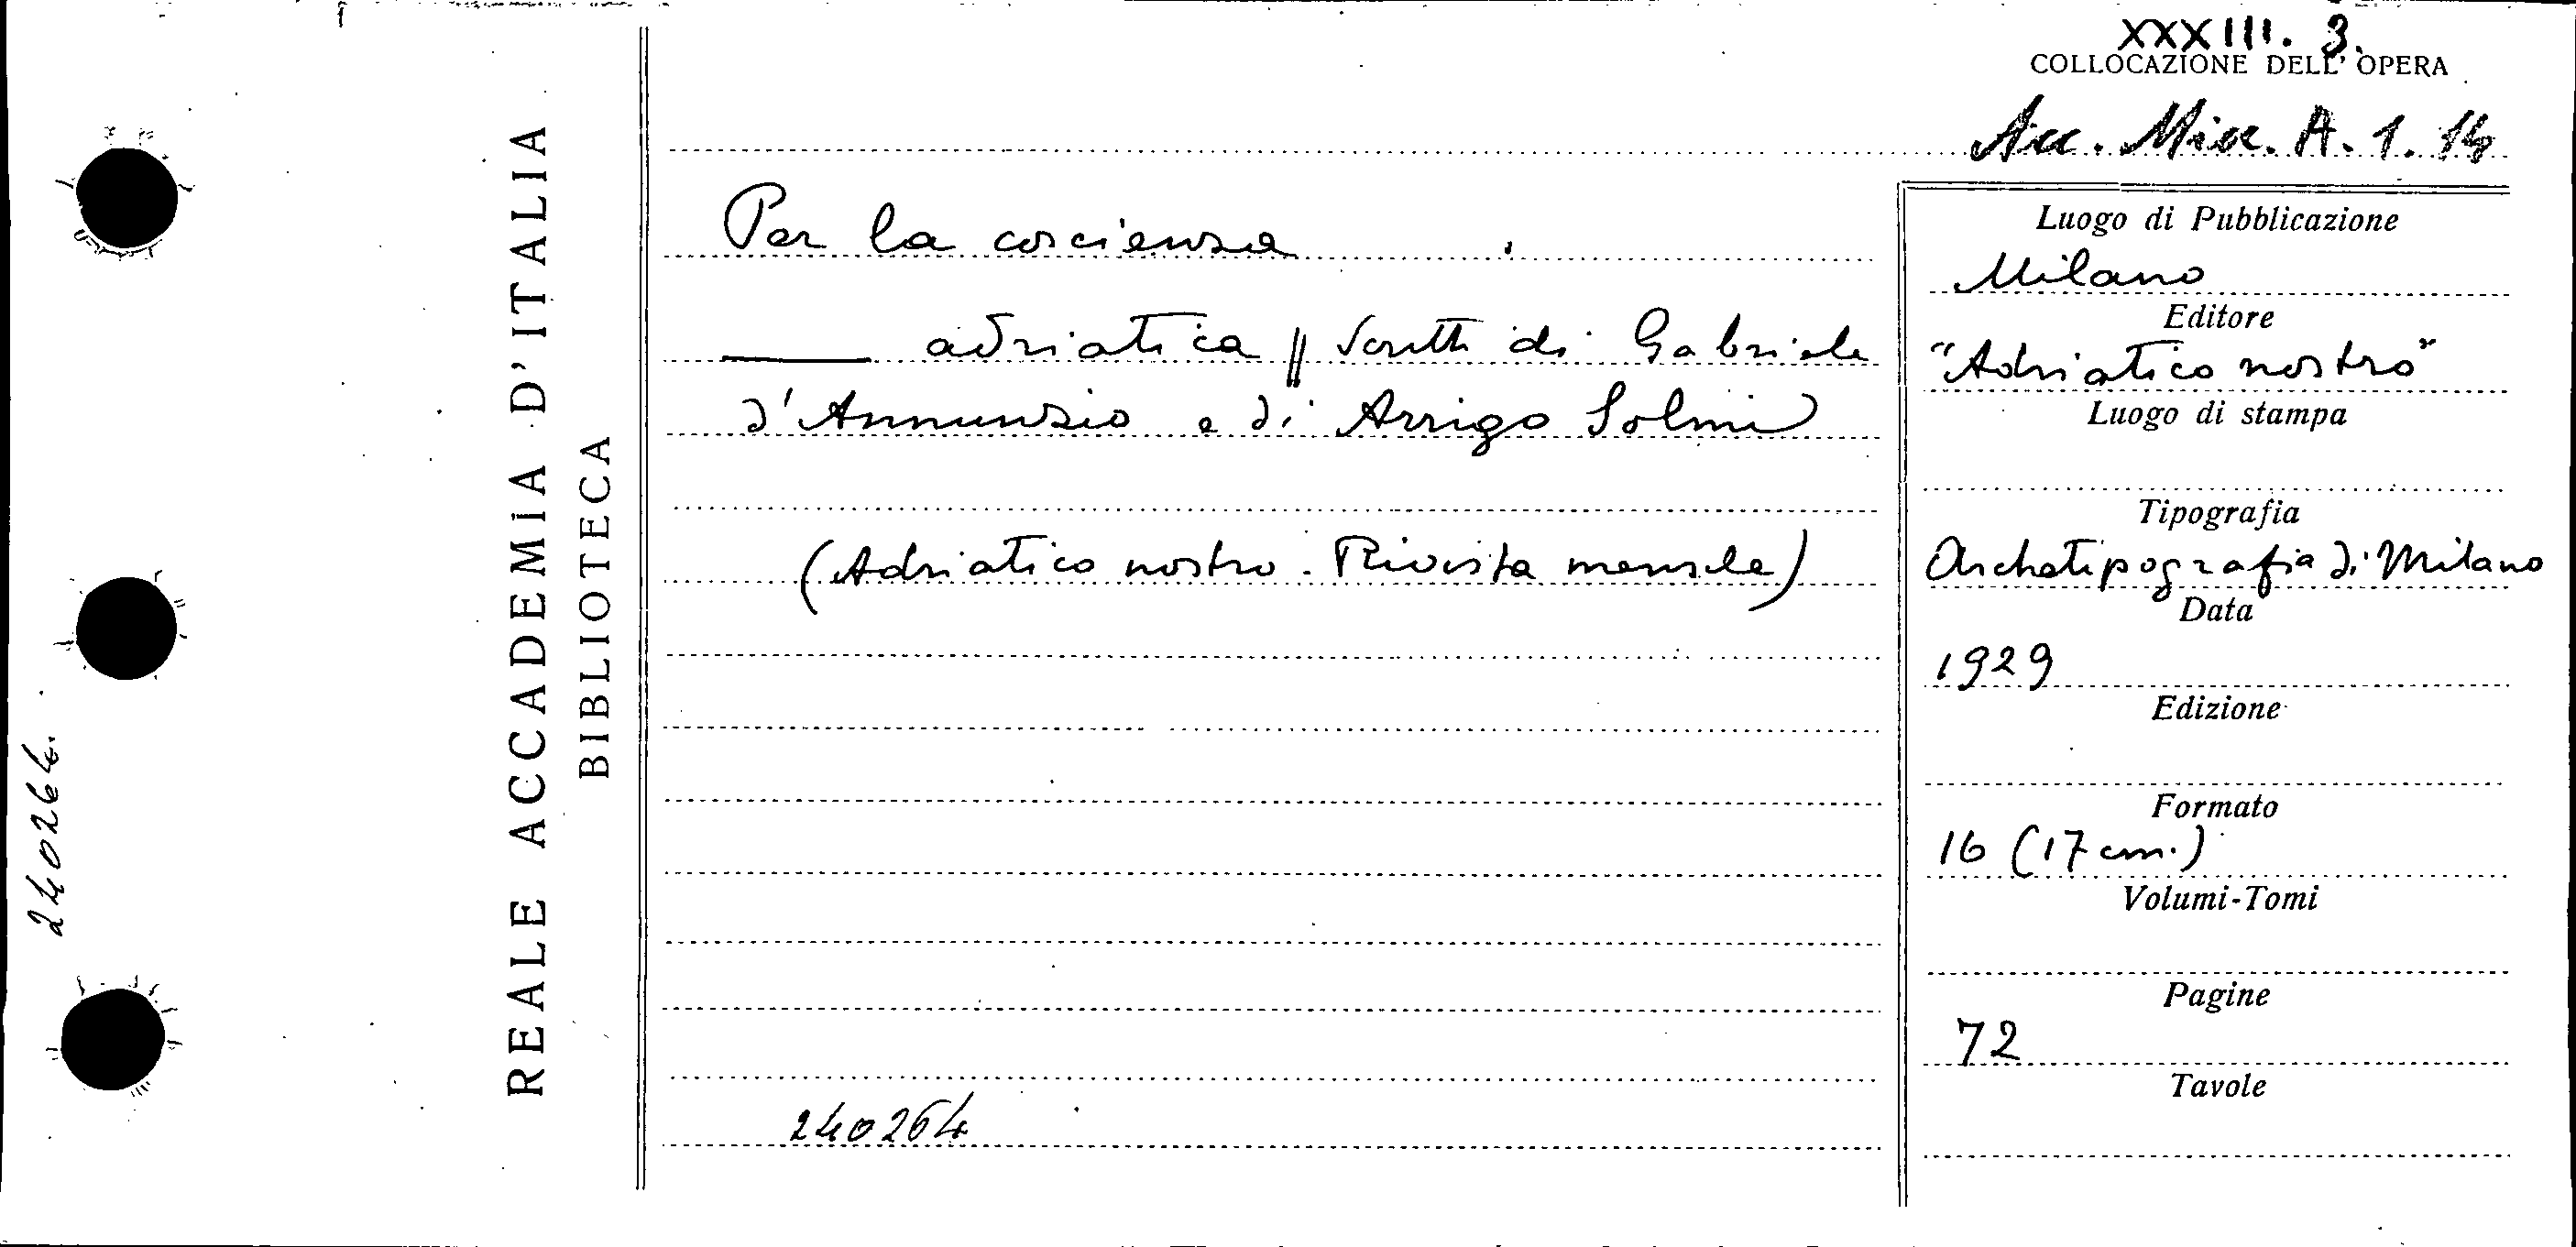 XXXIII. 3.
COLLOCAZIONE DELL' OPERA
Acc. Misc. A. 1. 14
REALE ACCADEMIA D'ITALIA
BIBLIOTECA
240264.
Per la coscienza
adriatica || Scritti di Gabriele
d'Annunzio e di Arrigo Solmi
(Adriatico nostro. Rivista mensile)
240264
Luogo di Pubblicazione
Milano
Editore
"Adriatico nostro"
Luogo di stampa
Tipografia
Archetipografia di Milano
Data
1929
Edizione
Formato
16 (17 cm.)
Volumi-Tomi
Pagine
72
Tavole